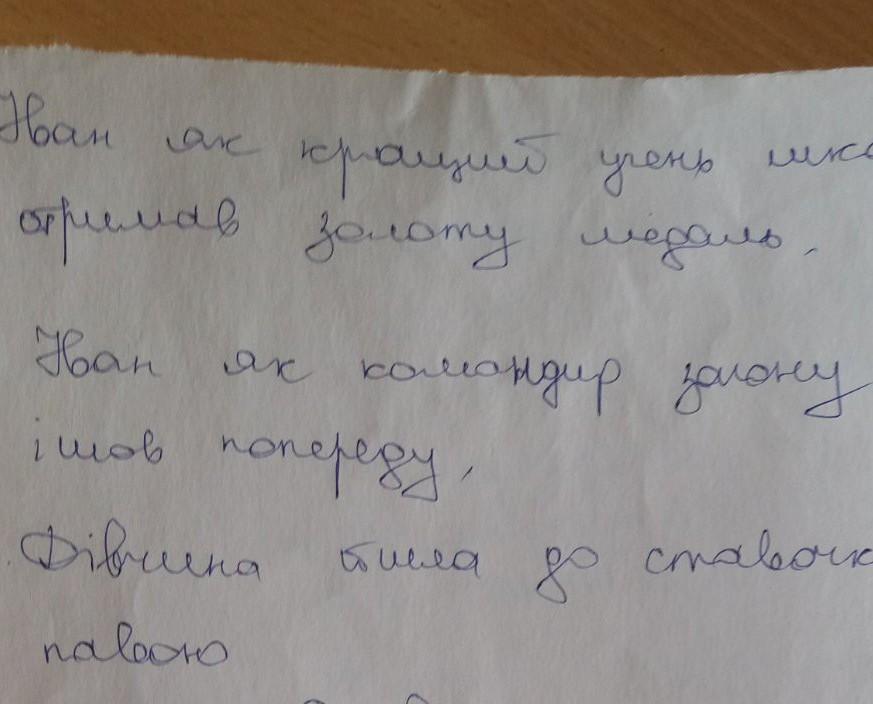 Іван як кращий учень шко
отримав золоту медаль.
Іван як командир загону
ішов попереду,
Дівчина до ставочк
павою